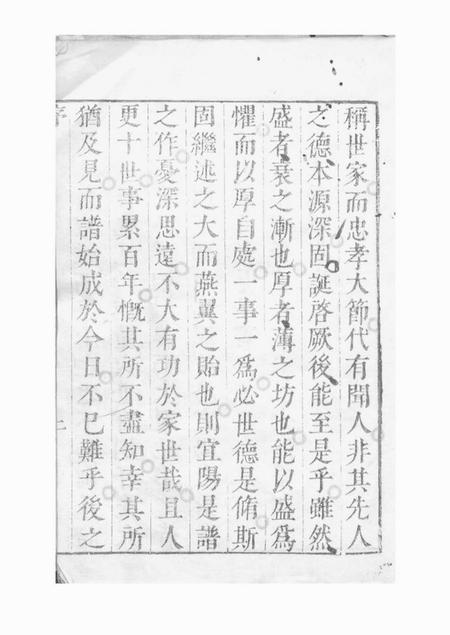 稱世家而忠孝大節代有聞人非其先人
之德本源深固誕啓厥後能至是乎雖然
盛者衰之漸也厚者薄之坊也能以盛爲
懼而以厚自處一事一爲必世德是脩斯
固繼述之大而燕翼之貽也則宜陽是譜
之作憂深思遠不大有功於家世哉且人
更十世事累百年慨其所不盡知幸其所
猶及見而譜始成於今日不已難乎後之
序